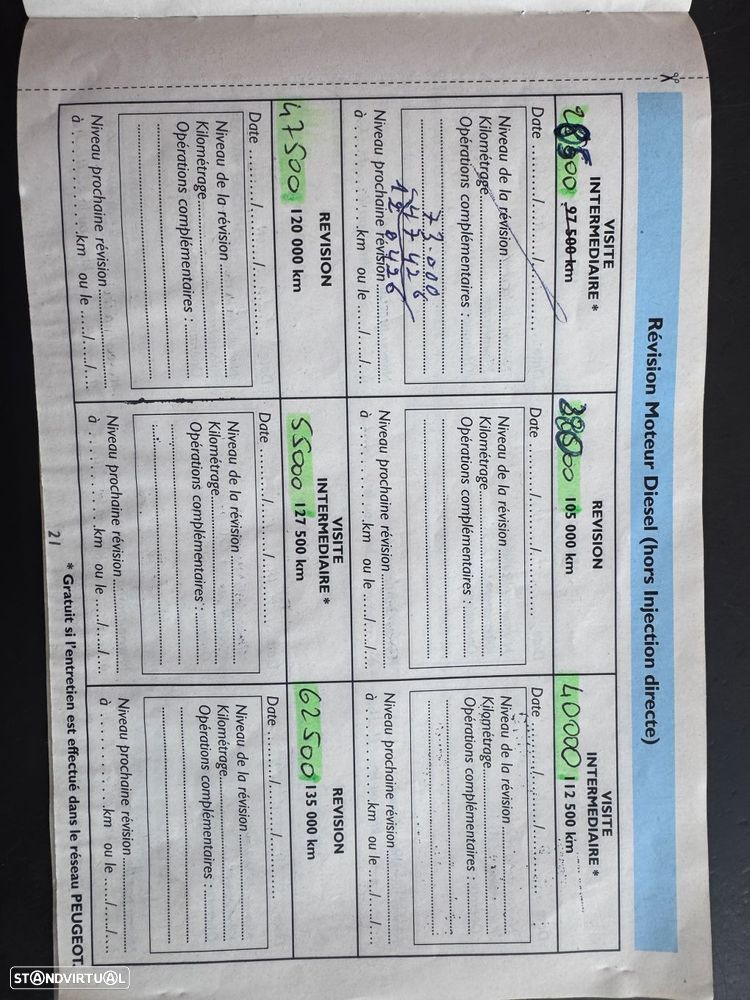 Révision Moteur Diesel (hors Injection directe)
VISITE
INTERMEDIAIRE *
97 500 km
Date ........./........./............
Niveau de la révision ............
Kilométrage
Opérations complémentaires : ......
73.000
47426
120426
Niveau prochaine révision...............
à ............km ou le ...../...../....
REVISION
105 000 km
Date ........./........./............
Niveau de la révision ............
Kilométrage
Opérations complémentaires : ......
Niveau prochaine révision...............
à ............km ou le ...../...../....
VISITE
INTERMEDIAIRE *
40000 112 500 km
Date ........./........./............
Niveau de la révision ............
Kilométrage............
Opérations complémentaires : ......
Niveau prochaine révision...............
à ............km ou le ...../...../....
REVISION
47500 120 000 km
Date ........./........./............
Niveau de la révision ............
Kilométrage............
Opérations complémentaires : ......
Niveau prochaine révision...............
à ............km ou le ...../...../....
VISITE
INTERMEDIAIRE *
55000 127 500 km
Date ........./........./............
Niveau de la révision ............
Kilométrage............
Opérations complémentaires : ......
Niveau prochaine révision...............
à ............km ou le ...../...../....
REVISION
62500 135 000 km
Date ........./........./............
Niveau de la révision ............
Kilométrage............
Opérations complémentaires : ......
Niveau prochaine révision...............
à ............km ou le ...../...../....
* Gratuit si l'entretien est effectué dans le réseau PEUGEOT.
21
STANDVIRTUAL